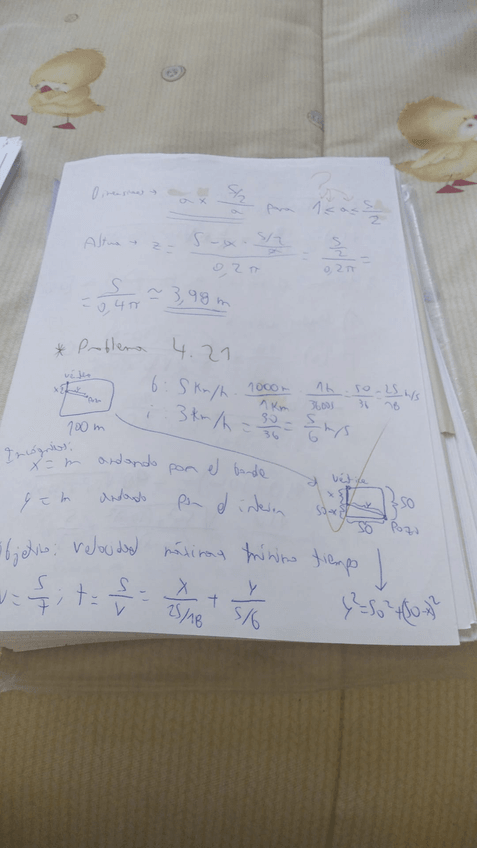 a × 5/2 / a para 1 ≤ a ≤ 5/2
Altura → z = = 5/2 / 0,2π =
= 5 / 0,4π ≃ 3,98 m
* Problema 4.21
vértice
100 m
b: 5 Km/h · 1000 m / 1 Km · 1h / 3600s = 50/36 = 25/18 m/s
i: 3 km/h = 30/36 = 5/6 m/s
Incógnitas:
x = m andando por el borde
y = m andando por el interior
vértice
x
50-x
y
50
50
Pozo
Objetivo: velocidad máxima mínimo tiempo
v = s/t ; t = s/v = x / 25/18 + y / 5/6
y² = 50² + (50-x)²